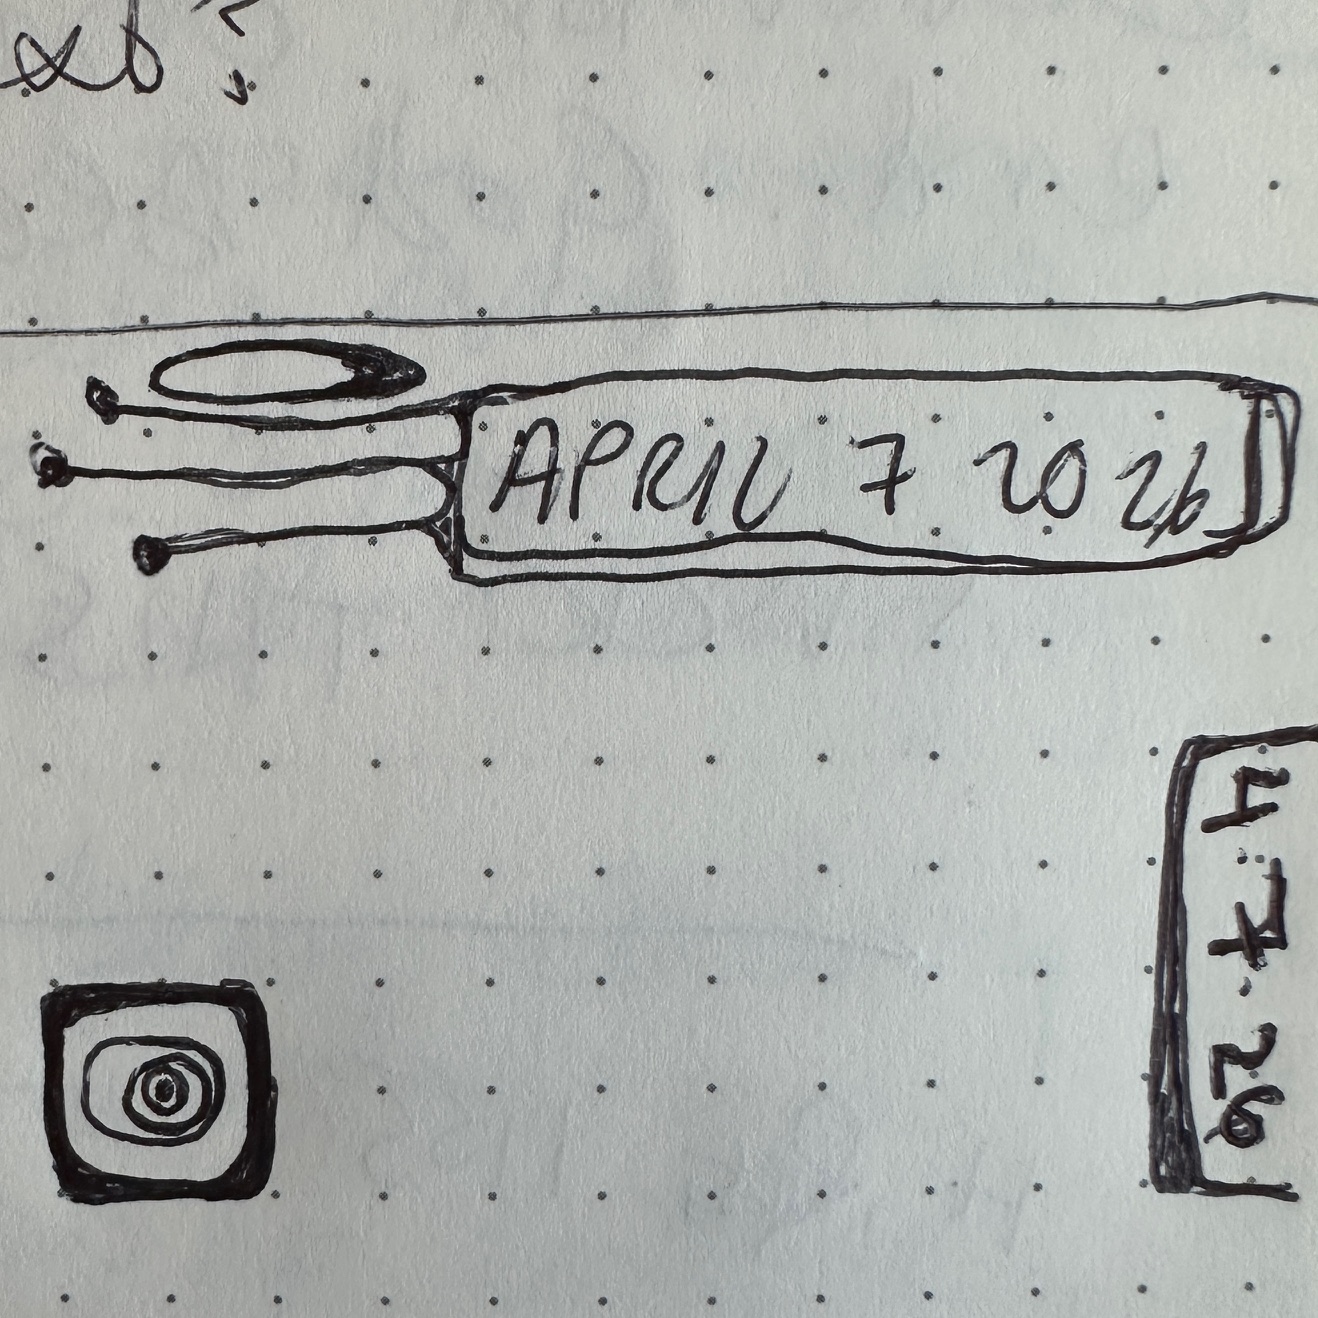 APRIL 7 2026
4.7.26